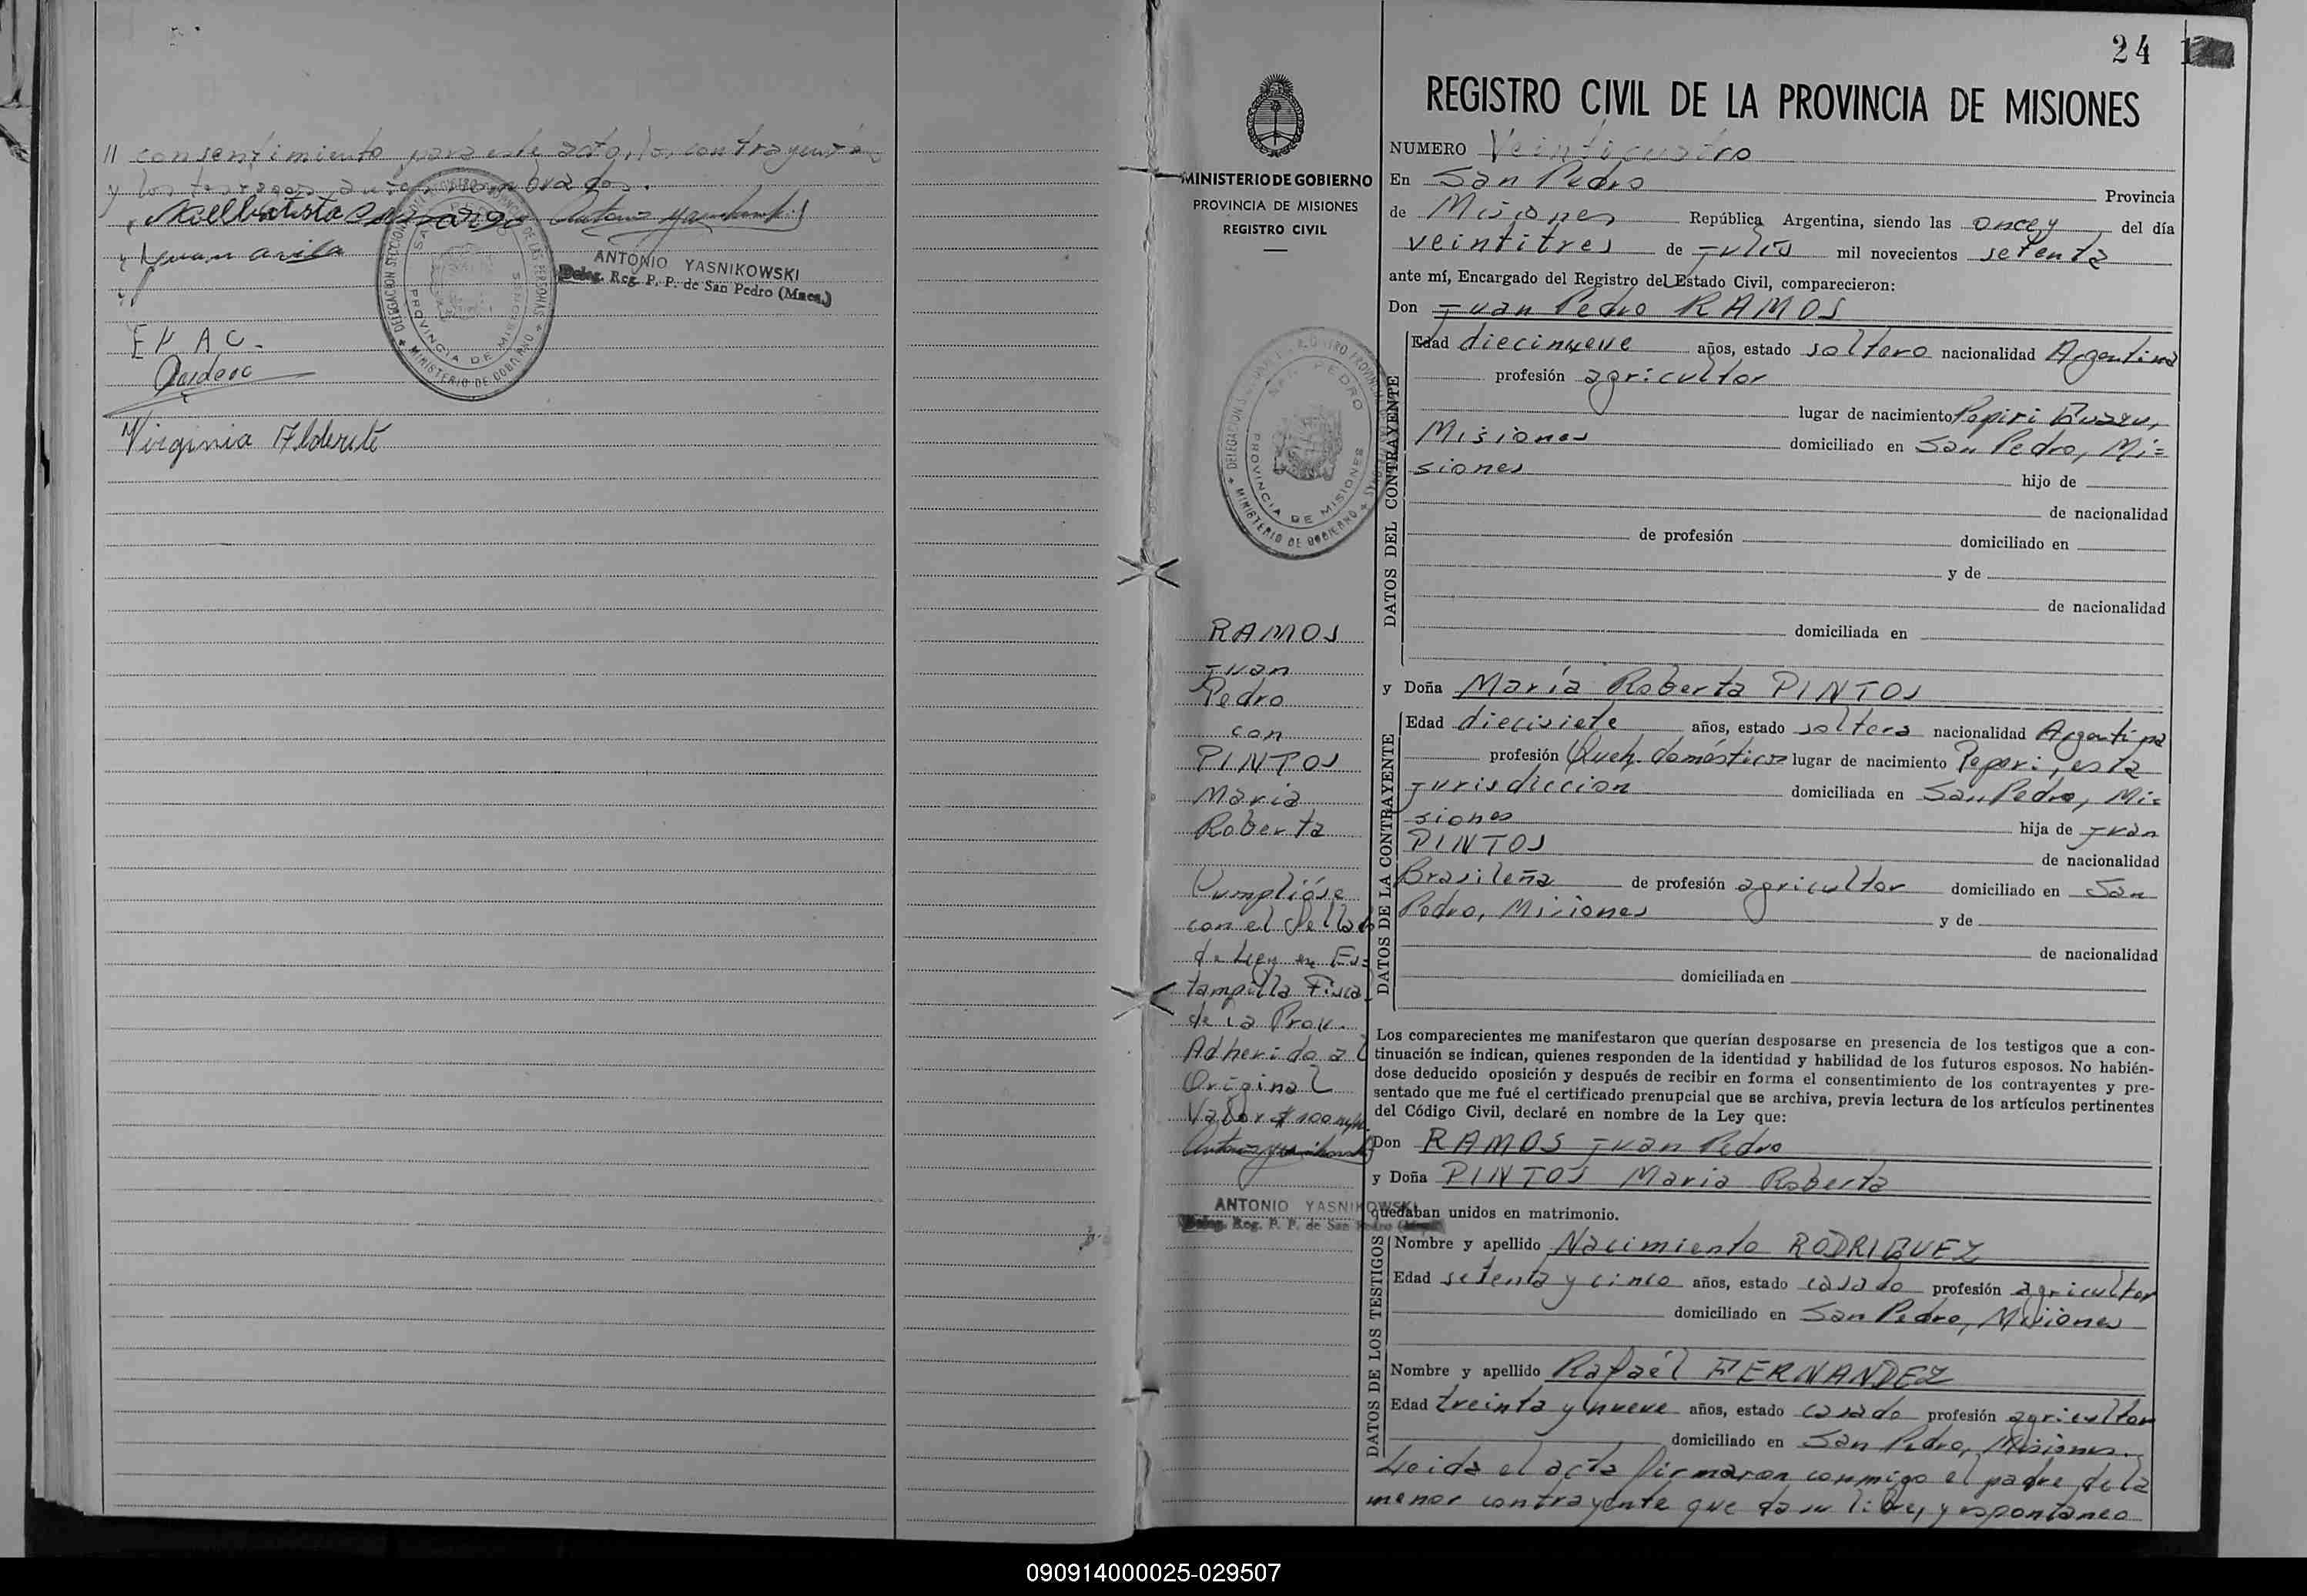 // consentimiento para este acto, los contrayentes
y los testigos antes nombrados.
Juan Avila
ANTONIO YASNIKOWSKI
Deleg. Reg. P. P. de San Pedro (Mnes.)
Virginia Alderete
DELEGACION SECCIONAL
SAN PEDRO
PROVINCIA DE MISIONES
MINISTERIO DE GOBIERNO
24
MINISTERIO DE GOBIERNO
PROVINCIA DE MISIONES
REGISTRO CIVIL
SAN PEDRO
PROVINCIA DE MISIONES
MINISTERIO DE GOBIERNO
RAMOS
Juan
Pedro
con
PINTOS
María
Roberta
Cumplióse
con el Sellado
de Ley en Es=
tampilla Fiscal
de la Prov.
Adherido al
Original
Valor $ 100 m/n
ANTONIO YASNIKOWSKI
Deleg. Reg. P. P. de San Pedro
REGISTRO CIVIL DE LA PROVINCIA DE MISIONES
NUMERO Veinticuatro
En San Pedro Provincia
de Misiones República Argentina, siendo las once y del día
veintitres de Julio mil novecientos setenta
ante mí, Encargado del Registro del Estado Civil, comparecieron:
Don Juan Pedro RAMOS
DATOS DEL CONTRAYENTE
Edad diecinueve años, estado soltero nacionalidad Argentina
profesión agricultor
lugar de nacimiento Pepiri Guazu,
Misiones domiciliado en San Pedro, Mi=
siones hijo de
de nacionalidad
de profesión domiciliado en
y de
de nacionalidad
domiciliada en
y Doña María Roberta PINTOS
DATOS DE LA CONTRAYENTE
Edad diecisiete años, estado soltera nacionalidad Argentina
profesión Queh. domésticos lugar de nacimiento Peperi, esta
Jurisdiccion domiciliada en San Pedro, Mi=
siones hija de Juan
PINTOS de nacionalidad
Brasileña de profesión agricultor domiciliado en San
Pedro, Misiones y de
de nacionalidad
domiciliada en
Los comparecientes me manifestaron que querían desposarse en presencia de los testigos que a con-
tinuación se indican, quienes responden de la identidad y habilidad de los futuros esposos. No habién-
dose deducido oposición y después de recibir en forma el consentimiento de los contrayentes y pre-
sentado que me fué el certificado prenupcial que se archiva, previa lectura de los artículos pertinentes
del Código Civil, declaré en nombre de la Ley que:
Don RAMOS Juan Pedro
y Doña PINTOS Maria Roberta
quedaban unidos en matrimonio.
DATOS DE LOS TESTIGOS
Nombre y apellido Nacimiento RODRIGUEZ
Edad setenta y cinco años, estado casado profesión agricultor
domiciliado en San Pedro, Misiones
Nombre y apellido Rafaél FERNANDEZ
Edad treinta y nueve años, estado casado profesión agricultor
domiciliado en San Pedro, Misiones.
Leida el acta firmaron conmigo el padre de la
menor contrayente que da su libre y espontaneo
090914000025-029507